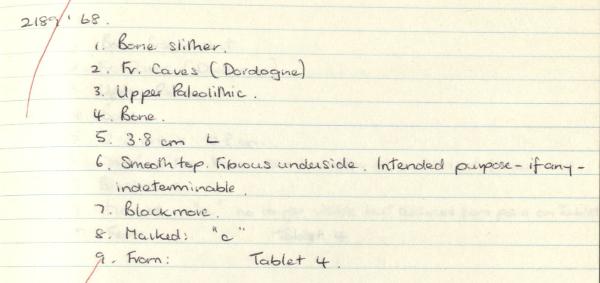 2189'68.
1. Bone slither.
2. Fr. Caves (Dordogne)
3. Upper Paleolithic.
4. Bone.
5. 3.8 cm L
6. Smooth top. Fibrous underside. Intended purpose - if any -
indeterminable.
7. Blackmore.
8. Marked: "c"
9. From: Tablet 4.